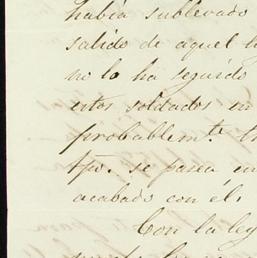 había sublevado
salido de aquel h
no lo ha seguido
estos soldados no
probablemt.e tr
tpo. se pasea en
acabado con él.
Con la ley